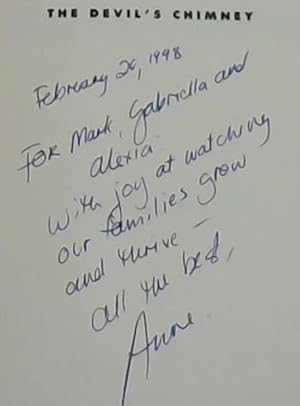 THE DEVIL'S CHIMNEY
February 20, 1998
For Mark, Gabriella and
Alexia
With joy at watching
our families grow
and thrive –
all the best,
Anne.